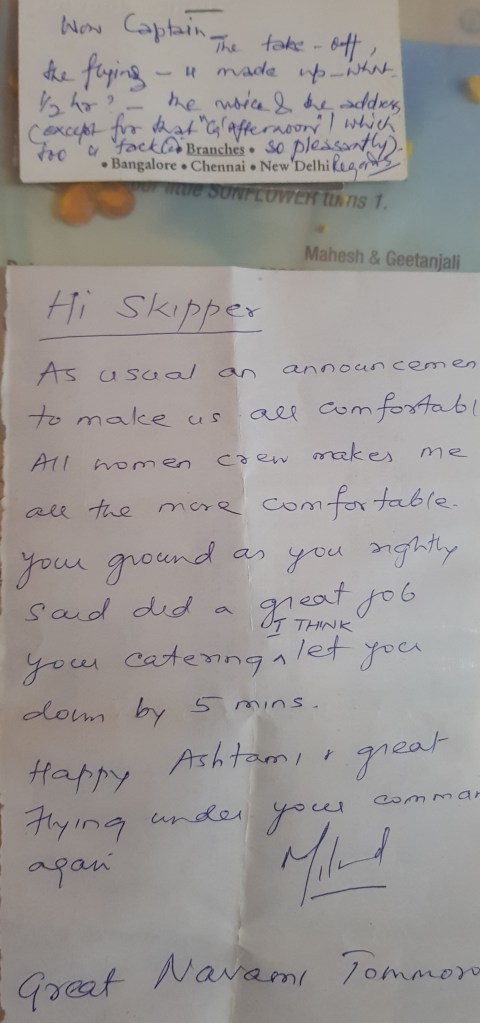 Wow Captain
The take-off,
the flying - is made up - what
1/2 hr? - the voice & the address
(except for that "G'Afternoon"! which
too is so pleasantly).
• Branches •
• Bangalore • Chennai • New Delhi
Regards
our little SUNFLOWER turns 1.
Mahesh & Geetanjali
Hi Skipper
As usual an announcemen
to make us all comfortabl
All women crew makes me
all the more comfortable.
your ground as you rightly
said did a great job
I THINK
your catering ^ let you
down by 5 mins.
Happy Ashtami & great
Flying under your comman
again
Milind
Great Navami Tommoro